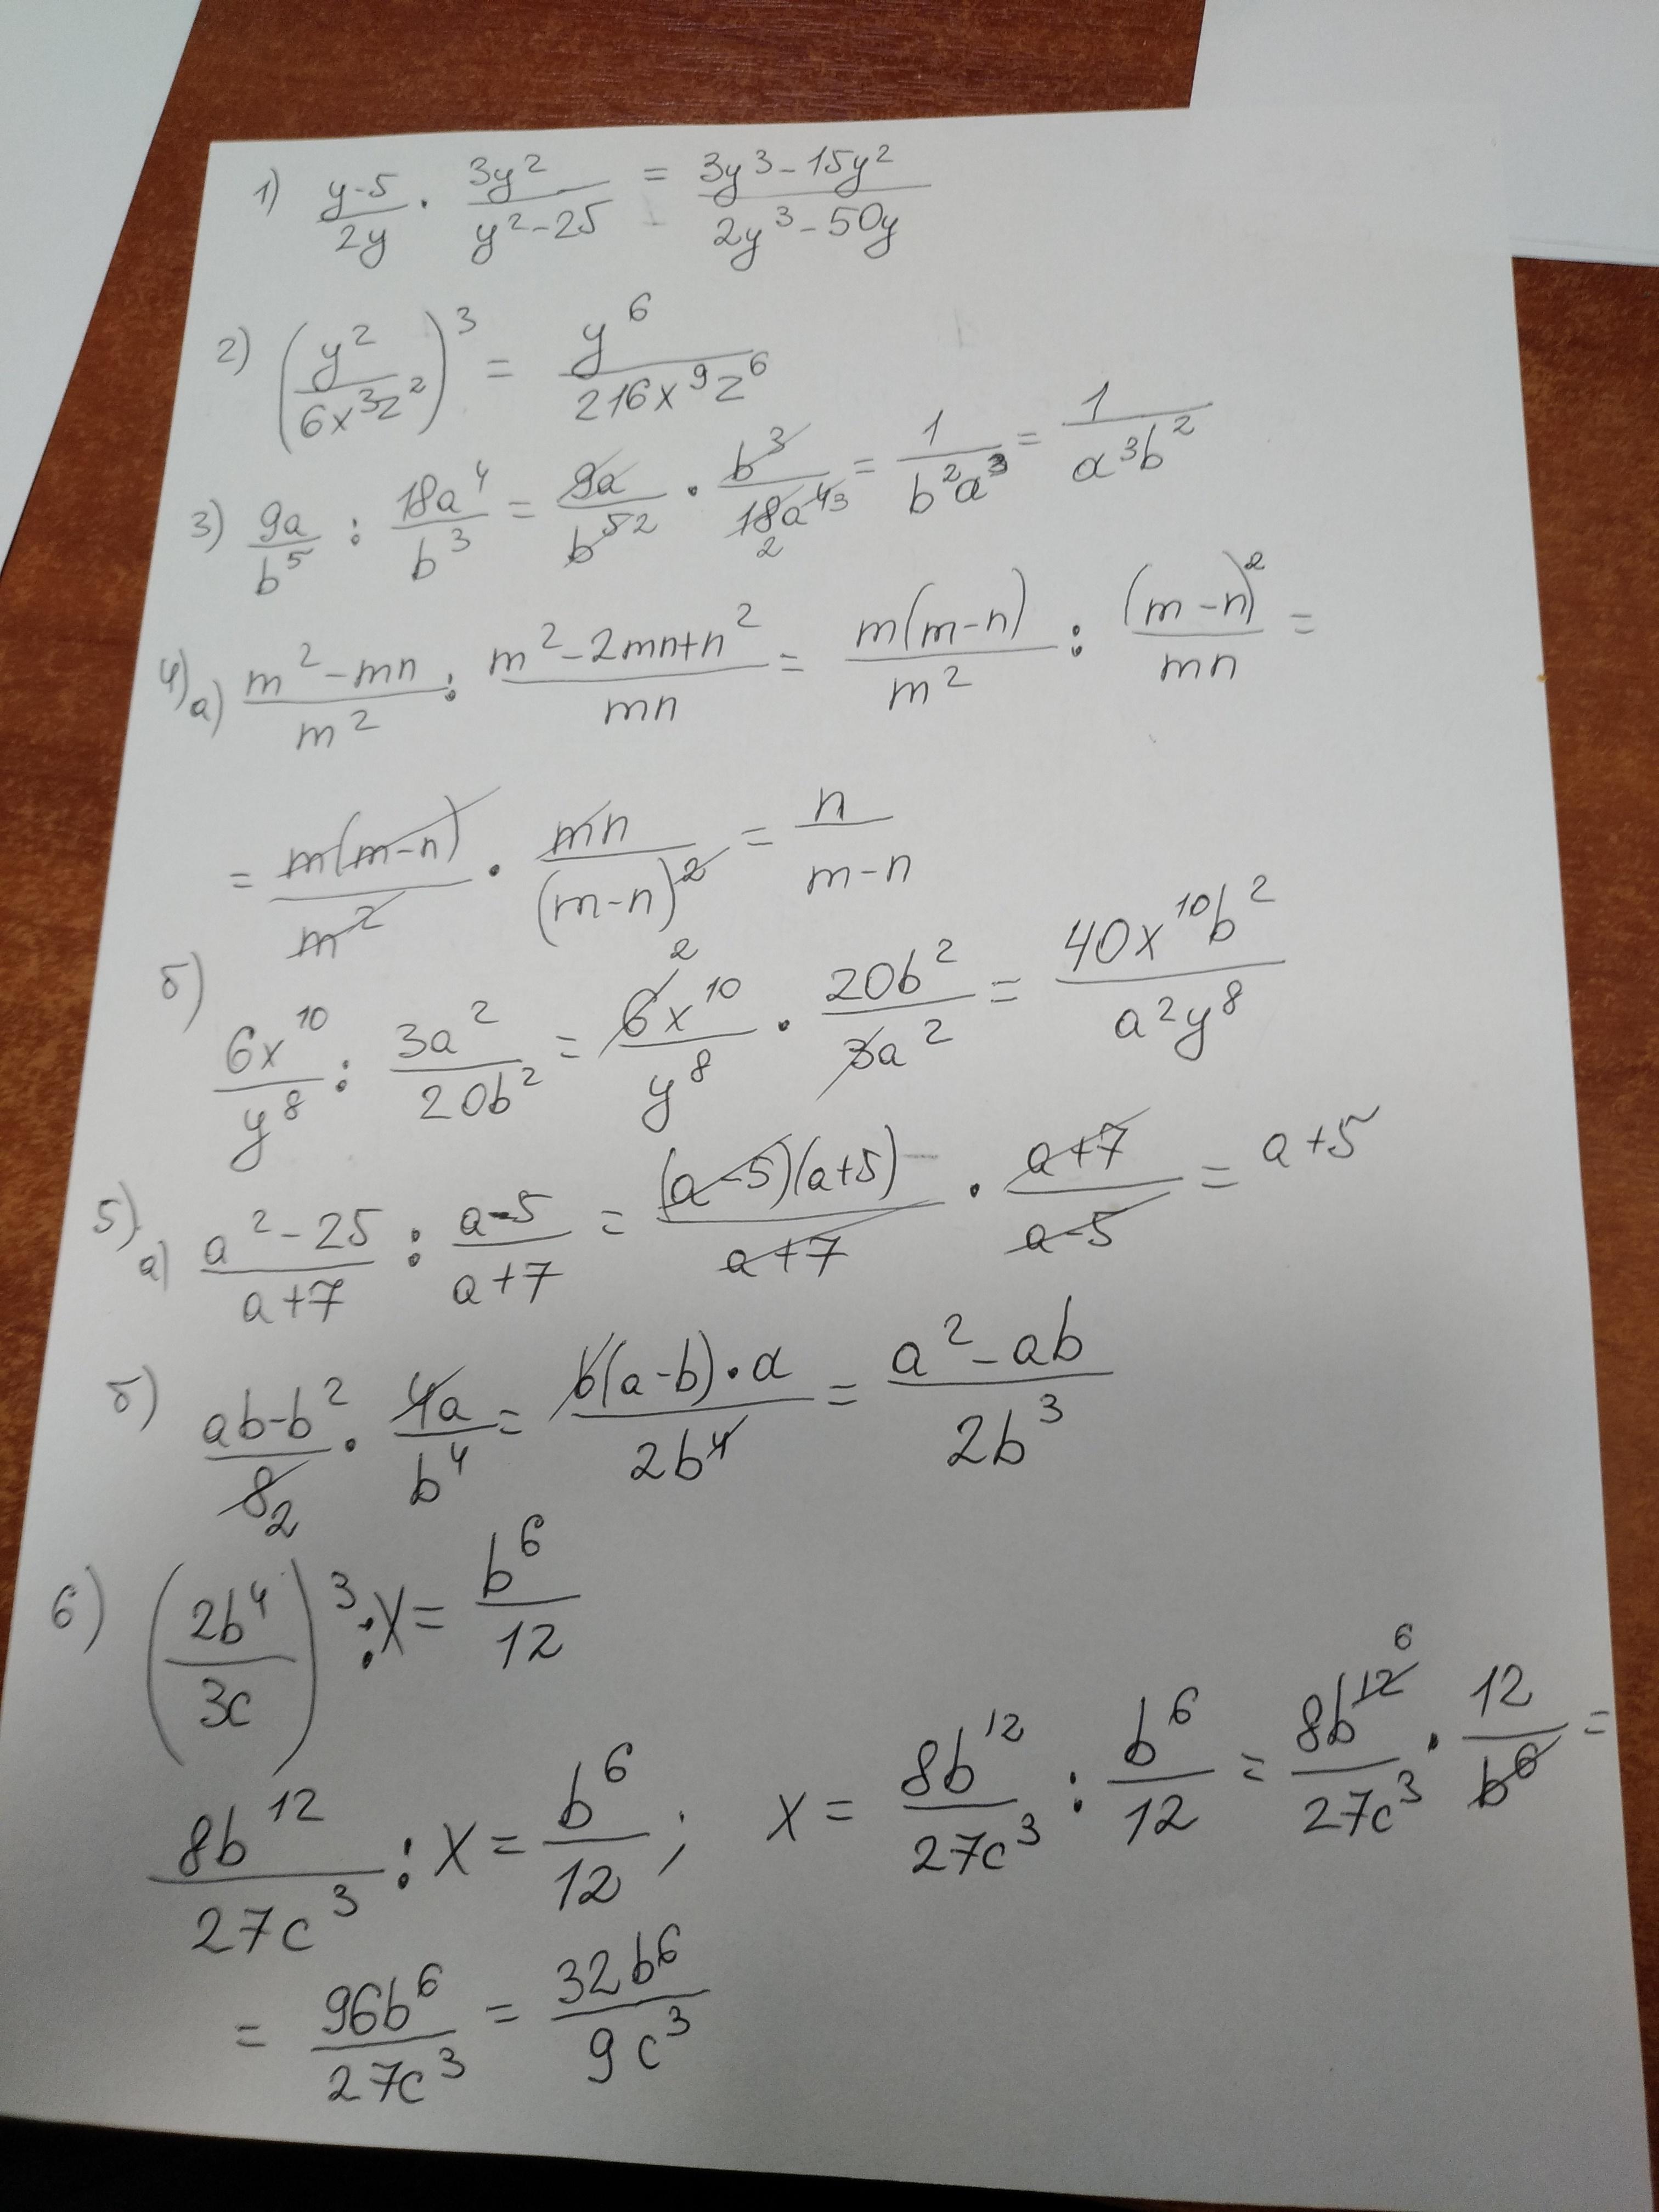 1) (y-5)/(2y) · (3y²)/(y²-25) = (3y³-15y²)/(2y³-50y)
2) (y²/(6x³z²))³ = y⁶/(216x⁹z⁶)
3) 9a/b⁵ : 18a⁴/b³ = 9a/b⁵ ² · b³/(18 2 a⁴ ³) = 1/(b²a³) = 1/(a³b²)
4) а) (m²-mn)/m² : (m²-2mn+n²)/(mn) = m(m-n)/m² : (m-n)²/(mn) =
= m(m-n)/m² · mn/(m-n)² = n/(m-n)
б) 6x¹⁰/y⁸ : 3a²/(20b²) = 6 2 x¹⁰/y⁸ · 20b²/(3a²) = 40x¹⁰b²/(a²y⁸)
5) а) (a²-25)/(a+7) : (a-5)/(a+7) = (a-5)(a+5)/(a+7) · (a+7)/(a-5) = a+5
б) (ab-b²)/(8 2) · 4a/b⁴ = b(a-b)·a/(2b⁴) = (a²-ab)/(2b³)
6) (2b⁴/(3c))³ : x = b⁶/12
8b¹²/(27c³) : x = b⁶/12 ; x = 8b¹²/(27c³) : b⁶/12 = 8b¹² ⁶/(27c³) · 12/b⁶ =
= 96b⁶/(27c³) = 32b⁶/(9c³)